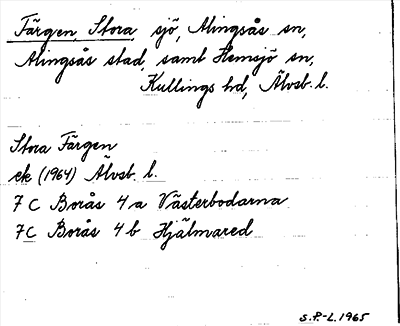 Färgen, Stora sjö, Alingsås sn,
Alingsås stad, samt Hemsjö sn,
Kullings hd, Älvsb. l.
Stora Färgen
ek (1964) Älvsb. l.
7 C Borås 4 a Västerbodarna
7C Borås 4 b Hjälmared
S.P.-L. 1965